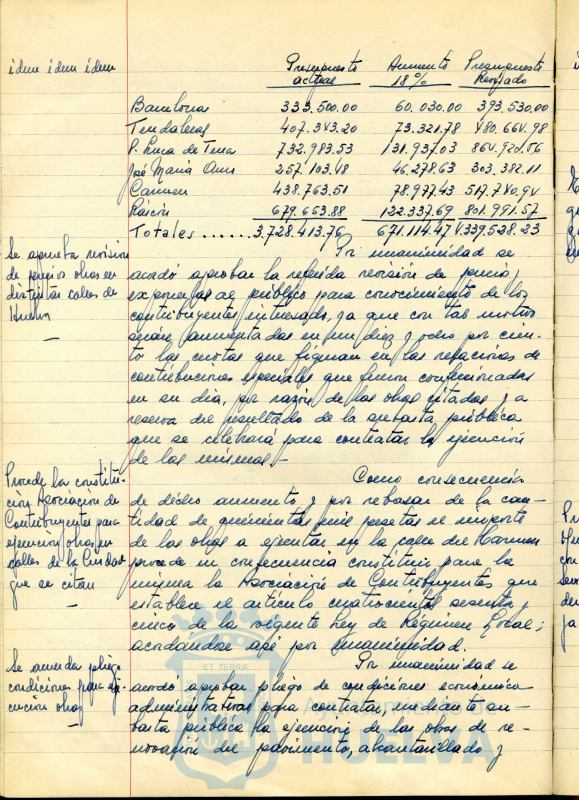 idem idem idem
Presupuesto Aumento Presupuesto
actual 18% Revisado
Barcelona 333.500.00 60.030.00 393.530.00
Tendaleras 407.343.20 73.321.78 480.664.98
P. Luca de Tena 732.983.53 131.937.03 864.920.56
José María Amo 257.103.48 46.278.63 303.382.11
Carmen 438.763.51 78.977.43 517.740.94
Rascón 679.653.88 122.337.69 801.991.57
Totales ...... 3.728.413.76 671.114.47 4.339.528.23
Por unanimidad se
Se aprueba revisión
de precios obras en
distintas calles de
Huelva
acordó aprobar la referida revisión de precios,
exponerlas al público para conocimiento de los
contribuyentes interesados, ya que con tal motivo
serán aumentadas en un diez y ocho por cien-
to las cuotas que figuran en las relaciones de
contribuciones especiales que fueron confeccionadas
en su día, por razón de las obras citadas y a
reserva del resultado de la subasta pública
que se celebrará para contratar la ejecución
de las mismas.-
Procede la constitu-
ción Asociación de
Contribuyentes para
ejecución obras en
calles de la Ciudad
que se citan
Como consecuencia
de dicho aumento y por rebasar de la can-
tidad de quinientas mil pesetas el importe
de las obras a ejecutar en la calle del Carmen
procede en consecuencia constituir para la
misma la Asociación de Contribuyentes que
establece el artículo cuatrocientos sesenta y
cinco de la vigente Ley de Régimen Local;
acordándose así por unanimidad.
Se acuerda pliego
condiciones para eje-
cución obras
Por unanimidad se
acordó aprobar pliego de condiciones económico
administrativas para contratar, mediante su-
basta pública la ejecución de las obras de re-
novación del pavimento, alcantarillado y
ET TERRÆ
Ayuntamiento de
HUELVA